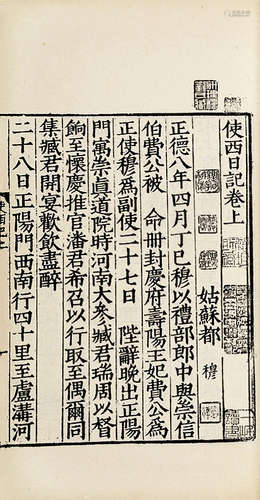 使西日記卷上
姑蘇都 穆
正德八年四月丁巳穆以禮部郎中與崇信
伯費公被 命冊封慶府壽陽王妃費公爲
正使穆爲副使二十七日 陛辭晚出正陽
門寓崇眞道院時河南大參臧君瑞周以督
餉至懷慶推官潘君希召以行取至偶爾同
集臧君開宴歡飲盡醉
二十八日正陽門西南行四十里至盧溝河